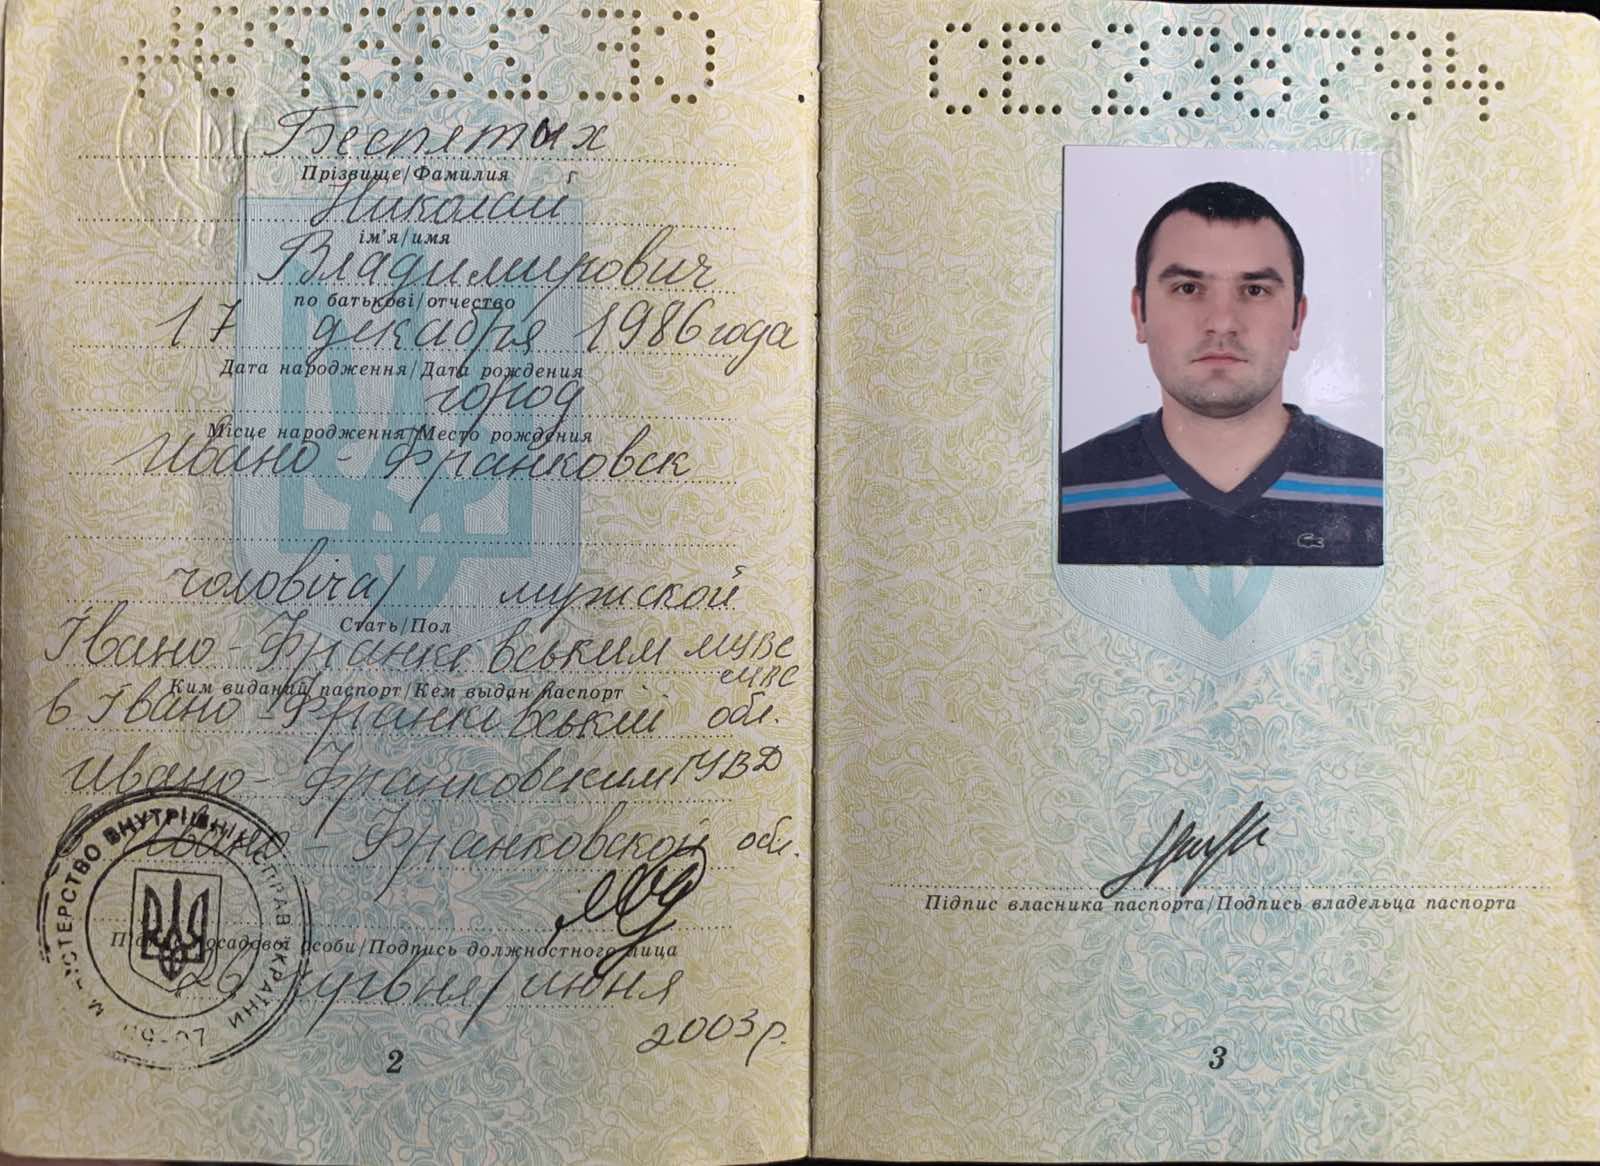 Беспятых
Прізвище/Фамилия
Николай
ім'я/имя
Владимирович
по батькові/отчество
17 декабря 1986 года
Дата народження/Дата рождения
город
Місце народження/Место рождения
Ивано-Франковск
чоловіча/ мужской
Стать/Пол
Івано-Франківським МУВС
УМВС
Ким виданий паспорт/Кем выдан паспорт
в Івано-Франківській обл.
Ивано-Франковским ГУВД
Ивано-Франковской обл.
МІНІСТЕРСТВО ВНУТРІШНІХ СПРАВ УКРАЇНИ
Підпис посадової особи/Подпись должностного лица
26 червня/июня
2003 р.
2
СЕ 238794
Підпис власника паспорта/Подпись владельца паспорта
3